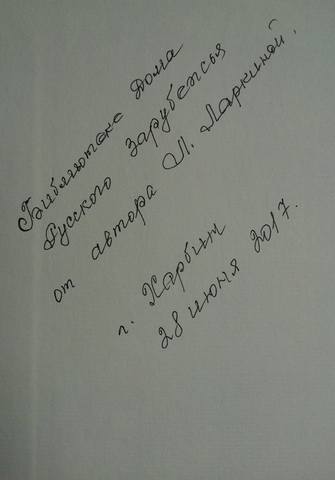 Библиотеке Дома
Русского Зарубежья
от автора Л. Ларкиной.
г. Харбин
28 июня 2017.